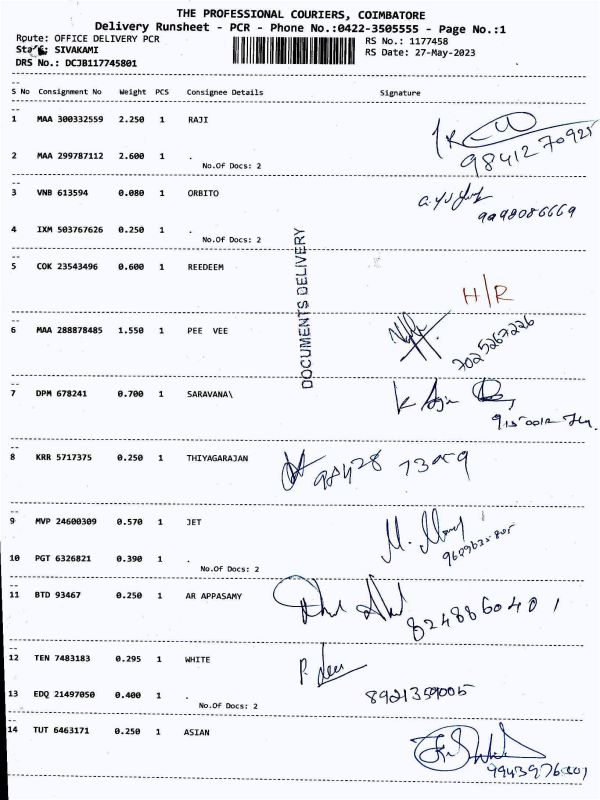 THE PROFESSIONAL COURIERS, COIMBATORE
Delivery Runsheet - PCR - Phone No.:0422-3505555 - Page No.:1
Route: OFFICE DELIVERY PCR
RS No.: 1177458
Staff: SIVAKAMI
RS Date: 27-May-2023
DRS No.: DCJB117745801
S No Consignment No Weight PCS Consignee Details Signature
1 MAA 300332559 2.250 1 RAJI
9841270925
2 MAA 299787112 2.600 1 .
No.Of Docs: 2
3 VNB 613594 0.080 1 ORBITO
9498086669
4 IXM 503767626 0.250 1 .
No.Of Docs: 2
DOCUMENTS DELIVERY
5 COK 23543496 0.600 1 REEDEEM
H/R
6 MAA 288878485 1.550 1 PEE VEE
7025267226
7 DPM 678241 0.700 1 SARAVANA\
8 KRR 5717375 0.250 1 THIYAGARAJAN
98428
9 MVP 24600309 0.570 1 JET
10 PGT 6326821 0.390 1 .
No.Of Docs: 2
11 BTD 93467 0.250 1 AR APPASAMY
8248860401
12 TEN 7483183 0.295 1 WHITE
13 EDQ 21497050 0.400 1 .
8921359005
No.Of Docs: 2
14 TUT 6463171 0.250 1 ASIAN